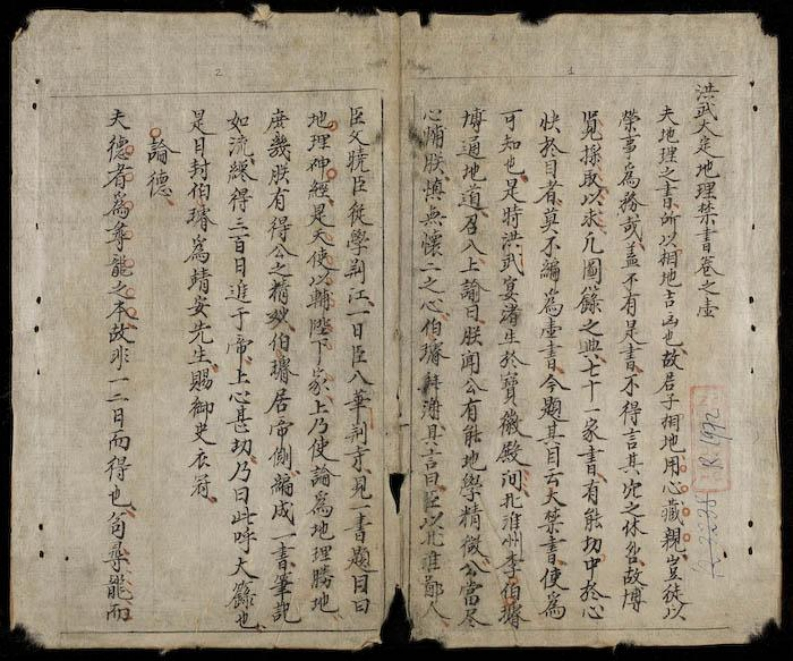 洪武大定地理禁書卷之壹
夫地理之書所以相地吉凶也故君子相地用心藏親豈徒以
榮事爲務哉蓋不有是書不得言其穴之休咎故博
覓採取以求凡圖籙之典七十一家書有能切中於心
快於目者莫不編爲壹書今題其目云大禁書使爲
可知也是時洪武宴渚生於寶徽殿问北淮州李伯璿
博通地道召入上諭曰朕聞公有能地學精微公當尽
心備朕慎無懷二之心伯璿拜謝具言曰臣以北淮鄙人
1
臣父曉臣從學荆江一日臣入華荆寺見一書題目曰
地理神經是天使以輔陛下家上乃使論爲地理勝地
庶幾朕有得公之精妙伯璿居帝側編成一書筆記
如流纔得三百日進于帝上心甚切乃曰此呼大籙也
是日封伯璿爲靖安先生賜御史衣冠
論德
夫德者爲尋龍之本故非一二日而得也苟尋龍而
2
R.1992